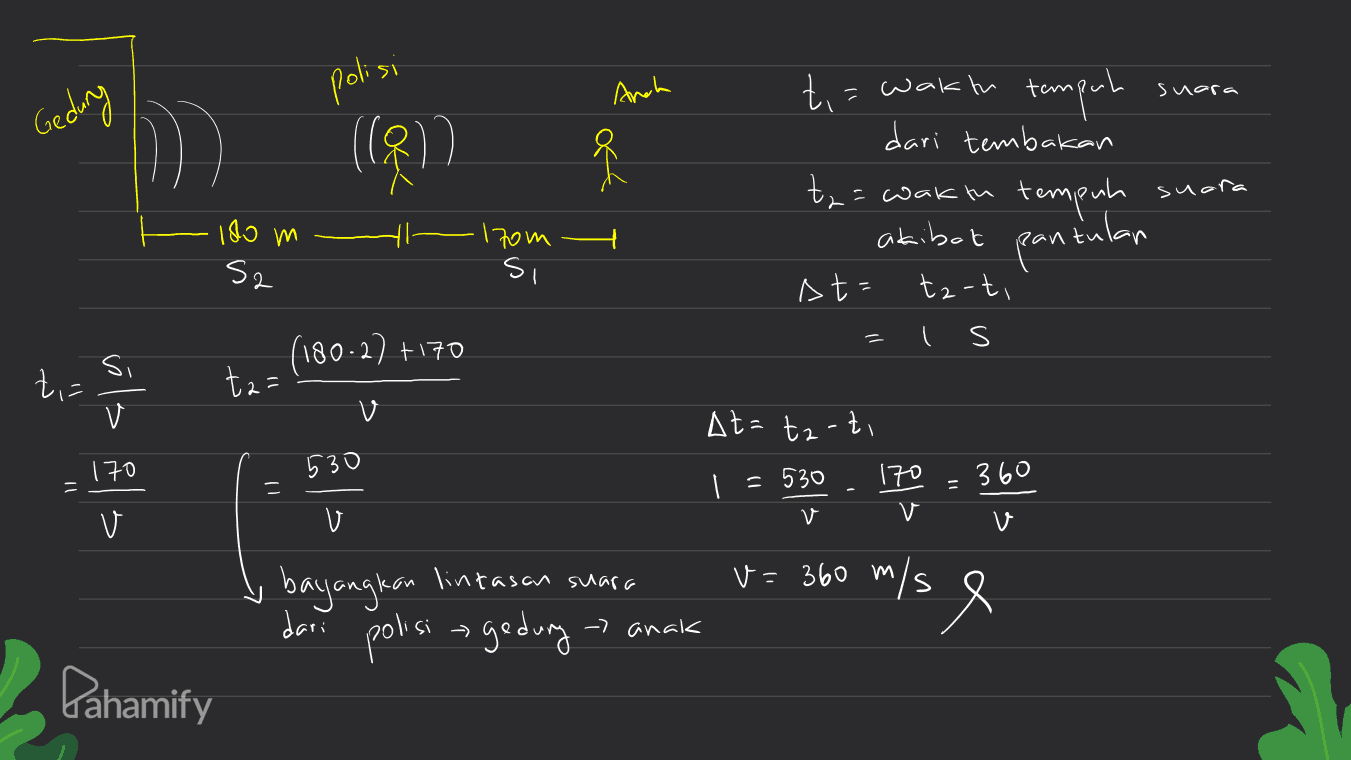 Gedung
polisi
Anak
180 m
170 m
S₂
S₁
t₁ = waktu tempuh suara
dari tembakan
t₂ = waktu tempuh suara
akibat pantulan
Δt = t₂ - t₁
= 1 s
t₁ = S₁/v
= 170/v
t₂ = (180·2) + 170/v
= 530/v
bayangkan lintasan suara
dari polisi → gedung → anak
Δt = t₂ - t₁
1 = 530/v - 170/v = 360/v
v = 360 m/s
Pahamify